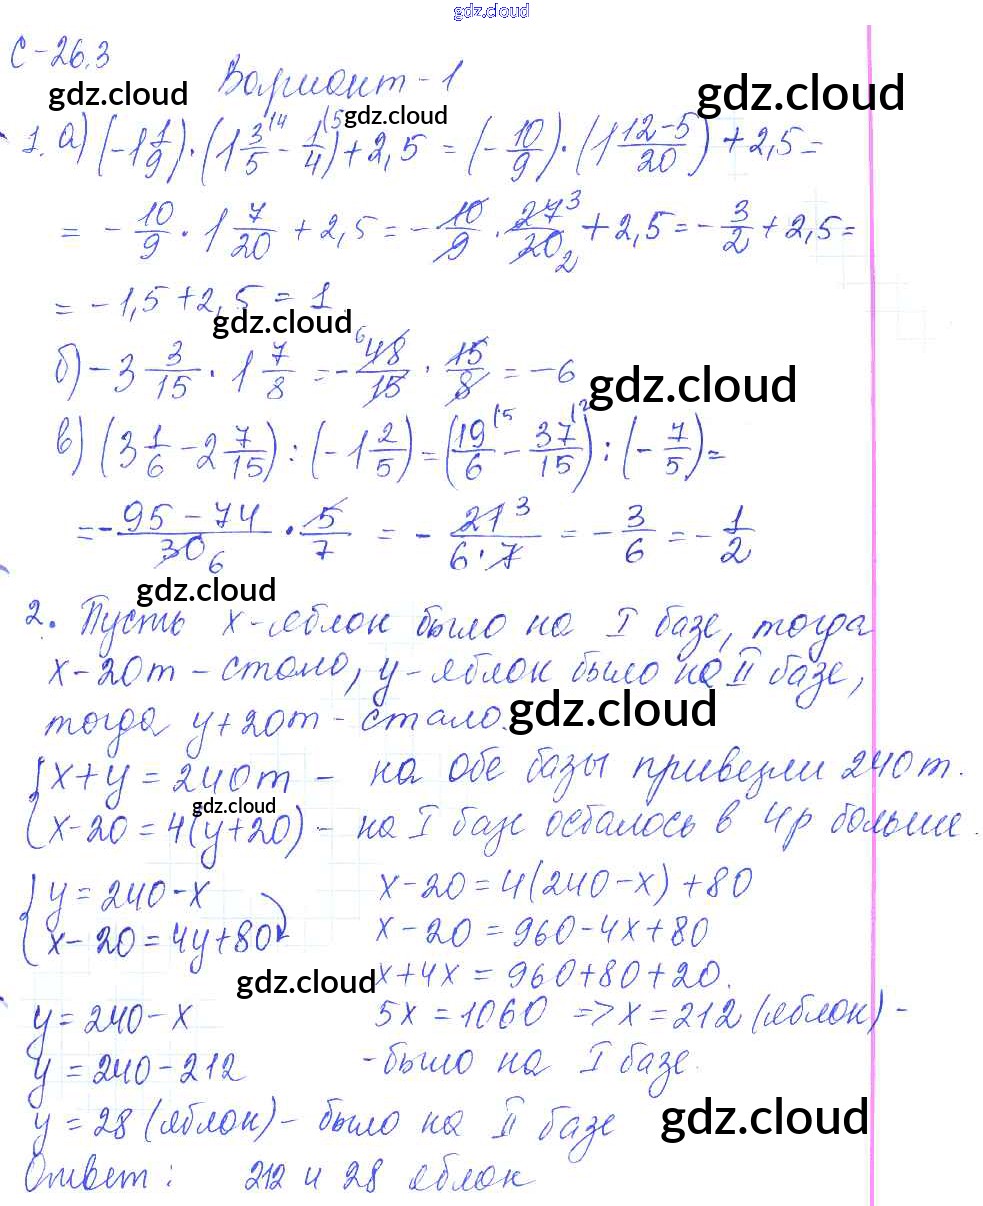 gdz.cloud
С-26.3
Вариант-1
gdz.cloud gdz.cloud gdz.cloud
1. а) (-1 1/9)·(1 3/5 (4 - 1/4 (5) + 2,5 = (-10/9)·(1 12-5/20) + 2,5 =
= - 10/9 · 1 7/20 + 2,5 = - 10/9 · 27 3/20 2 + 2,5 = - 3/2 + 2,5 =
= -1,5 + 2,5 = 1
gdz.cloud
б) -3 3/15 · 1 7/8 = - 6 48/15 · 15/8 = -6
gdz.cloud
в) (3 1/6 - 2 7/15) : (-1 2/5) = (19 (5/6 - 37 (2/15) : (-7/5) =
= - 95-74/30 6 · 5/7 = - 21 3/6·7 = - 3/6 = - 1/2
gdz.cloud
2. Пусть x-яблок было на I базе, тогда
x-20т - стало, y-яблок было на II базе,
тогда y+20т - стало.
gdz.cloud
{ x+y=240т - на обе базы привезли 240т.
gdz.cloud
x-20=4(y+20) - на I базе осталось в 4р больше.
{ y=240-x x-20=4(240-x)+80
x-20=4y+80 x-20=960-4x+80
gdz.cloud x+4x=960+80+20.
y=240-x 5x=1060 => x=212 (яблок) -
y=240-212 - было на I базе.
y=28 (яблок) - было на II базе
gdz.cloud
Ответ: 212 и 28 яблок